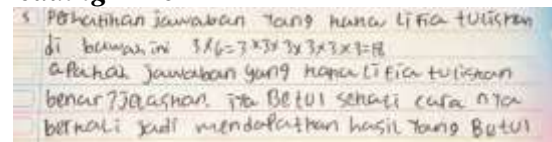 5 Perhatikan jawaban yang hana lifia tuliskan
di bawah ini 3x6=3x3x3x3x3x3=18
apakah jawaban yang hana lifia tuliskan
benar? Jelaskan. iya Betul sekali cara nya
berkali jadi mendapatkan hasil yang Betul